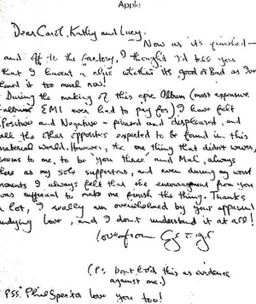 Apple
Dear Carol, Kathy and Lucy.
Now as it's finished—
and off to the factory, I thought I'd tell you
that I haven't a clue whether its good or bad as I've
heard it too much now!
During the making of this epic Album (most expensive
album EMI ever had to pay for) I have felt
Positive and Negative - pleased and displeased, and
all the other opposites expected to be found in this
material world. However, the one thing that didn't waver,
seems to me, to be 'you three' and Mal, always
there as my sole supporters, and even during my worst
moments I always felt that the encouragement from you
was sufficient to make me finish the thing. Thanks
a lot, I really am overwhelmed by your apparent
undying love, and I don't understand it at all!
Love from George
(P.S. Don't hold this as evidence
against me.)
PSS. Phil Spector love you too!